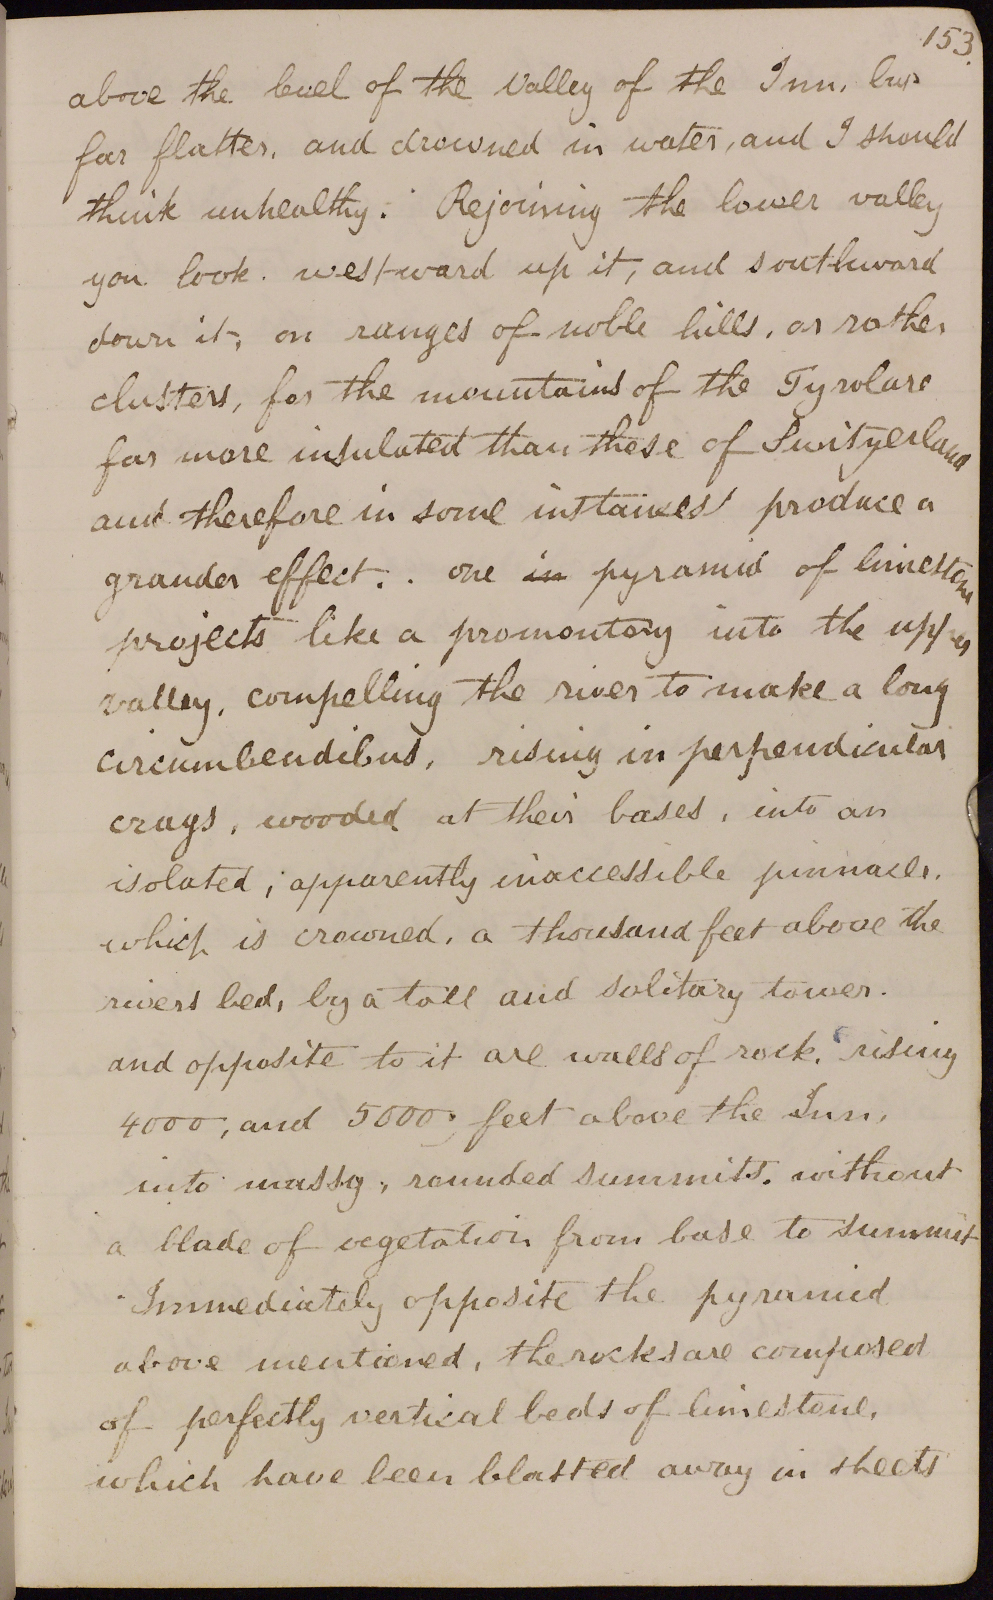 153.
above the level of the Valley of the Inn, but
far flatter, and drowned in water, and I should
think unhealthy. Rejoining the lower valley
you look westward up it, and southward
down it, on ranges of noble hills, or rather
clusters, for the mountains of the Tyrol are
far more insulated than those of Switzerland
and therefore in some instances produce a
grander effect. . one in pyramid of limestone
projects like a promontory into the upper
valley, compelling the river to make a long
circumbendibus, rising in perpendicular
crags, wooded at their bases, into an
isolated, apparently inaccessible pinnacle,
which is crowned, a thousand feet above the
rivers bed, by a tall and solitary tower.
and opposite to it are walls of rock, rising
4000, and 5000, feet above the Inn,
into massy, rounded summits. without
a blade of vegetation from base to summit
Immediately opposite the pyramid
above mentioned, the rocks are composed
of perfectly vertical beds of limestone,
which have been blasted away in sheets